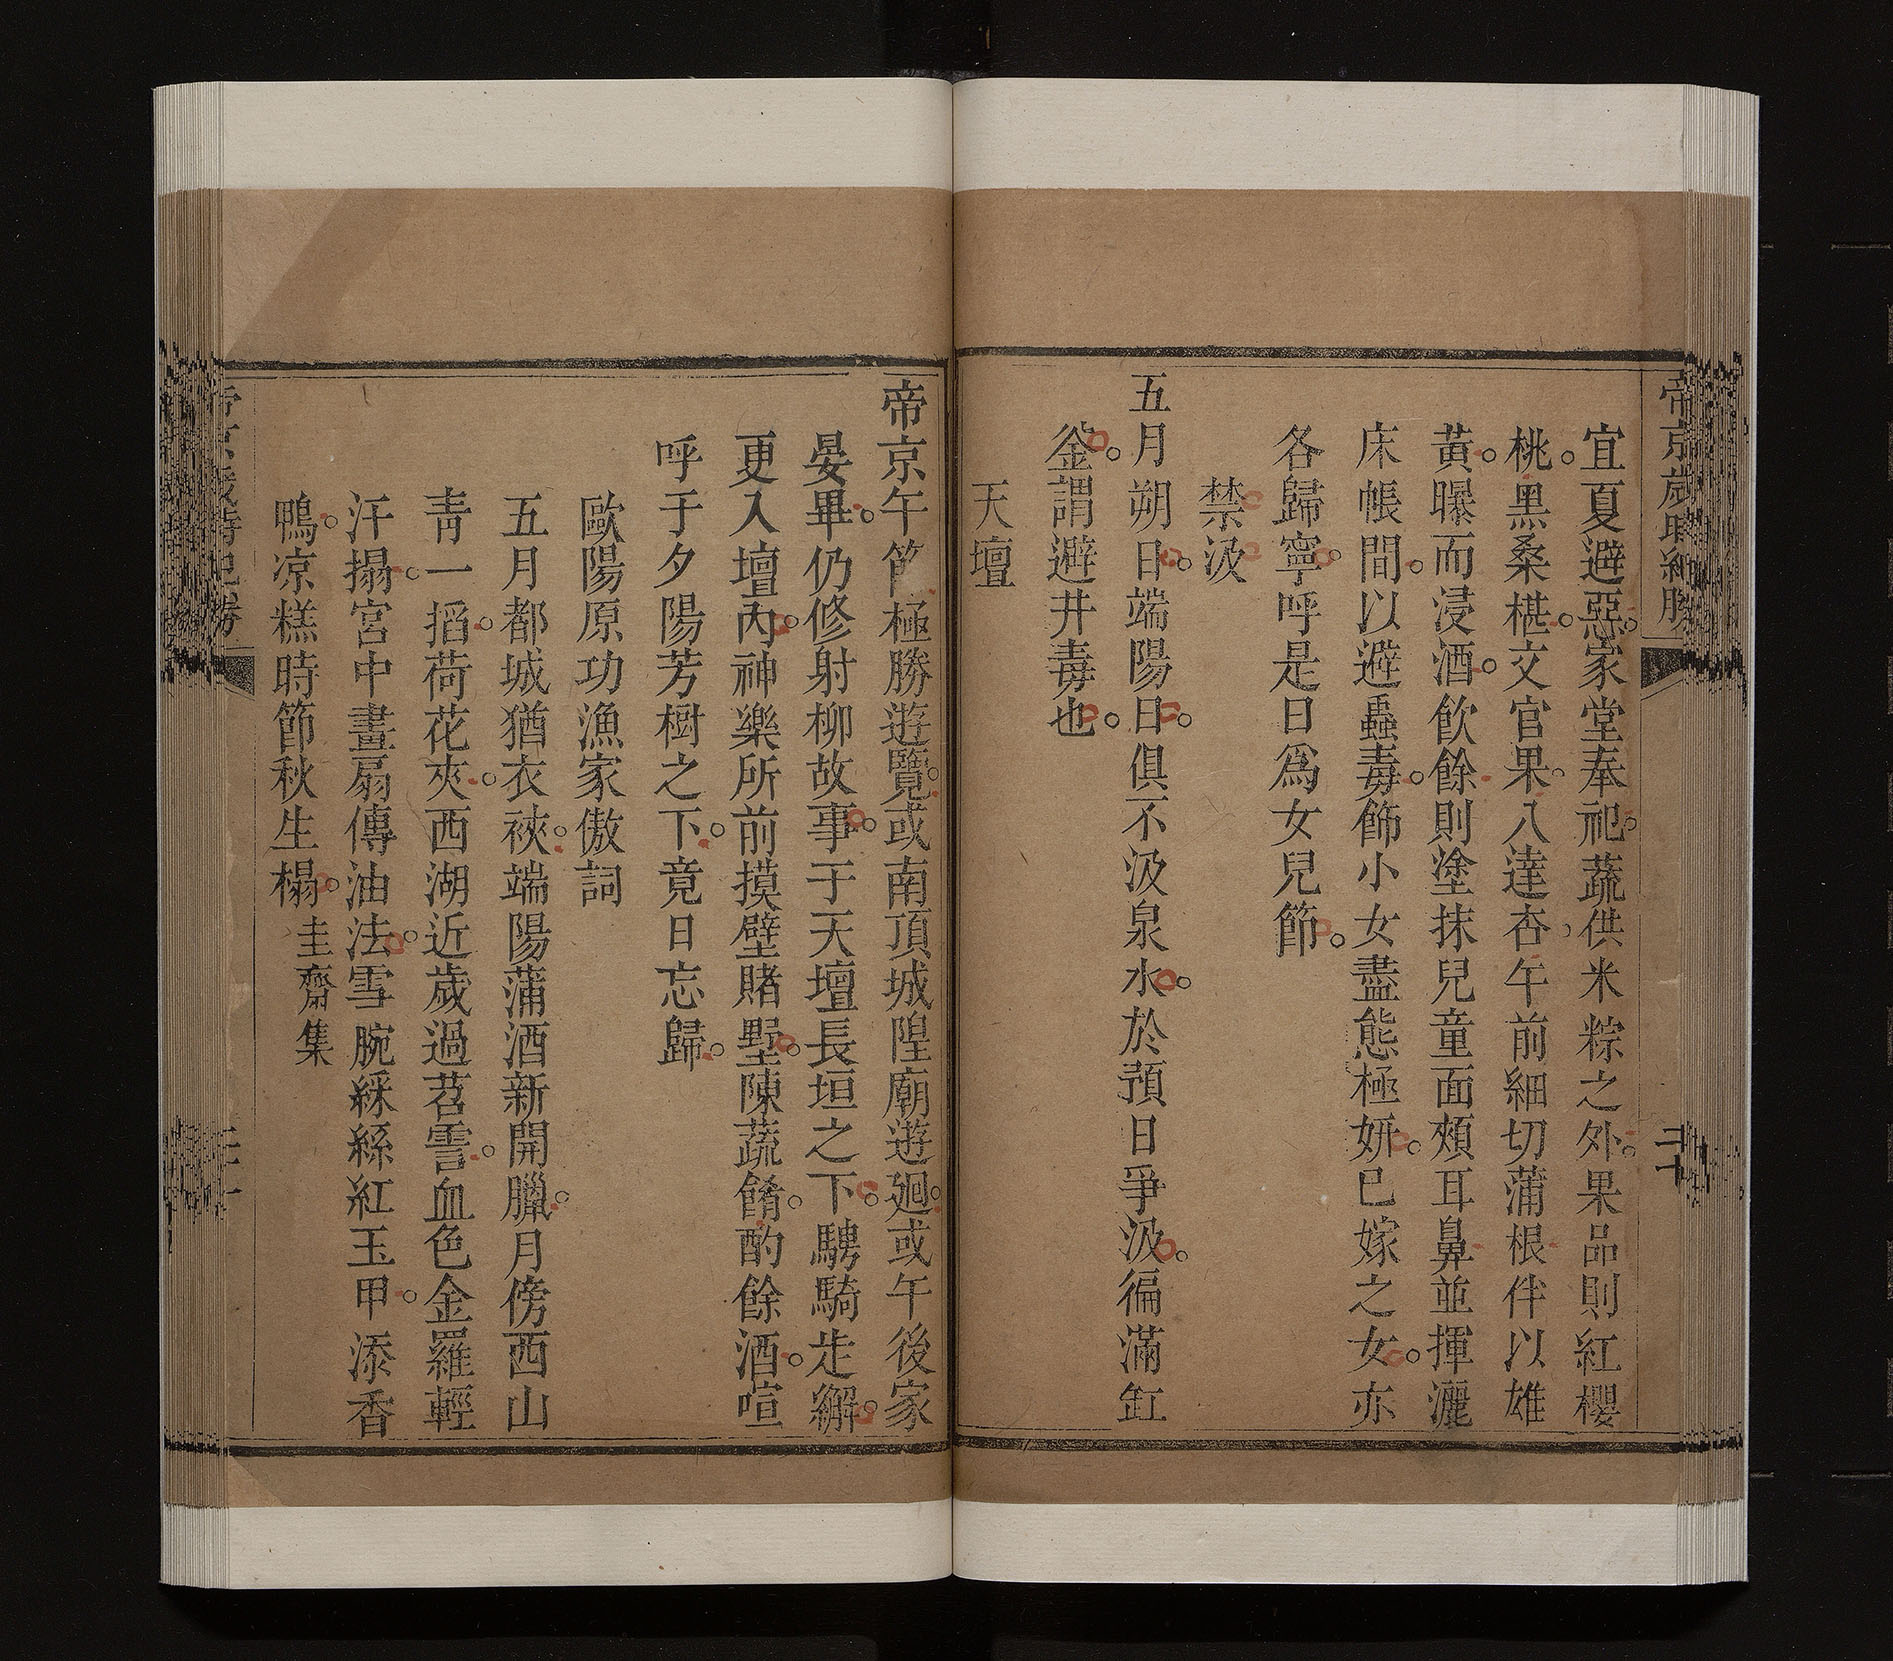 帝京歲時紀勝
宜夏避惡家堂奉祀蔬供米粽之外果品則紅櫻
桃黑桑椹文官果八達杏午前細切蒲根伴以雄
黃曝而浸酒飲餘則塗抹兒童面頰耳鼻並揮灑
床帳間以避蟲毒飾小女盡態極妍已嫁之女亦
各歸寧呼是日爲女兒節
禁汲
五月朔日端陽日俱不汲泉水於預日爭汲徧滿缸
釜謂避井毒也
天壇
帝京午節極勝遊覽或南頂城隍廟遊廻或午後家
晏畢仍修射柳故事于天壇長垣之下騁騎走繲
更入壇內神樂所前摸壁賭墅陳蔬餚酌餘酒喧
呼于夕陽芳樹之下竟日忘歸
歐陽原功漁家傲詞
五月都城猶衣裌端陽蒲酒新開臘月傍西山
青一掐荷花夾西湖近歲過苕霅血色金羅輕
汗搨宮中畫扇傳油法雪腕綵絲紅玉甲添香
鴨凉糕時節秋生榻圭齋集
帝京歲時紀勝